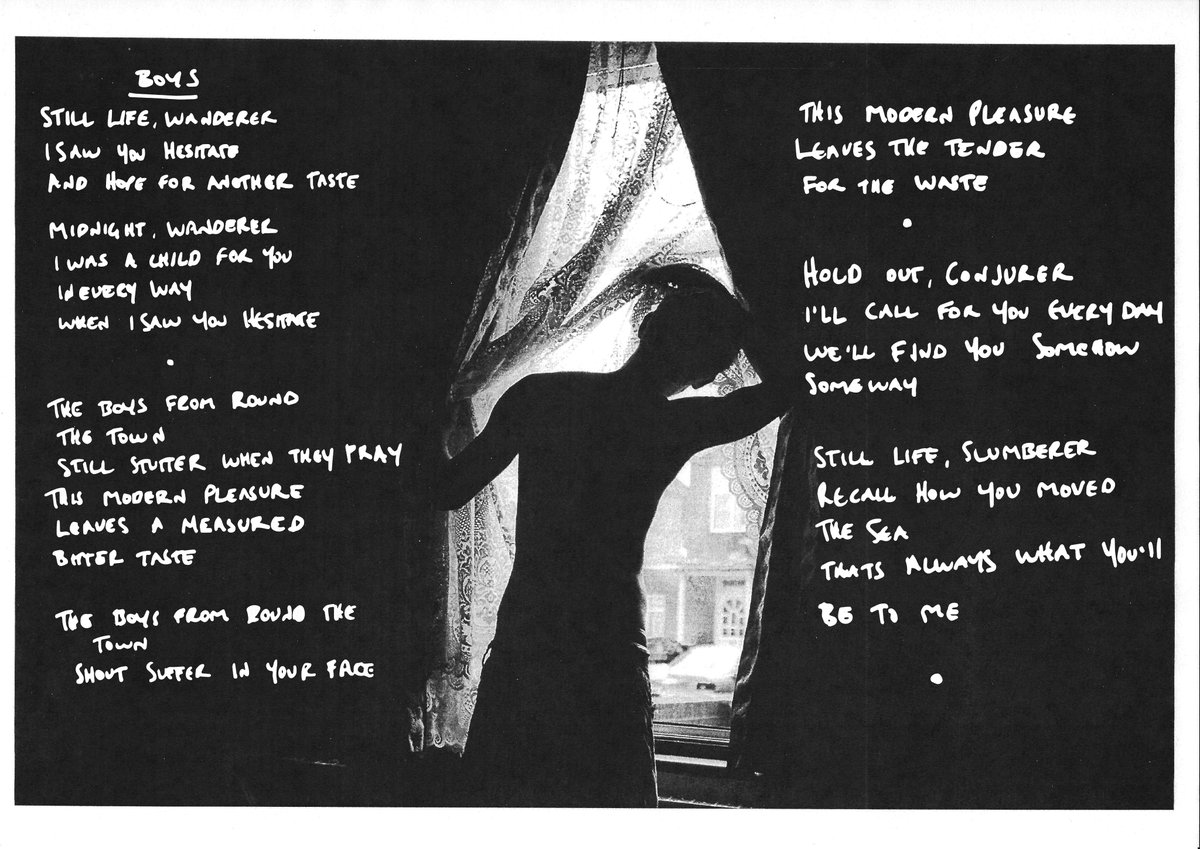 BOYS
STILL LIFE, WANDERER
I SAW YOU HESITATE
AND HOPE FOR ANOTHER TASTE
MIDNIGHT, WANDERER
I WAS A CHILD FOR YOU
IN EVERY WAY
WHEN I SAW YOU HESITATE
THE BOYS FROM ROUND
THE TOWN
STILL STUTTER WHEN THEY PRAY
THIS MODERN PLEASURE
LEAVES A MEASURED
BITTER TASTE
THE BOYS FROM ROUND THE
TOWN
SHOUT SUFFER IN YOUR FACE
THIS MODERN PLEASURE
LEAVES THE TENDER
FOR THE WASTE
HOLD OUT, CONJURER
I'LL CALL FOR YOU EVERY DAY
WE'LL FIND YOU SOMEHOW
SOMEWAY
STILL LIFE, SLUMBERER
RECALL HOW YOU MOVED
THE SEA
THATS ALWAYS WHAT YOU'll
BE TO ME